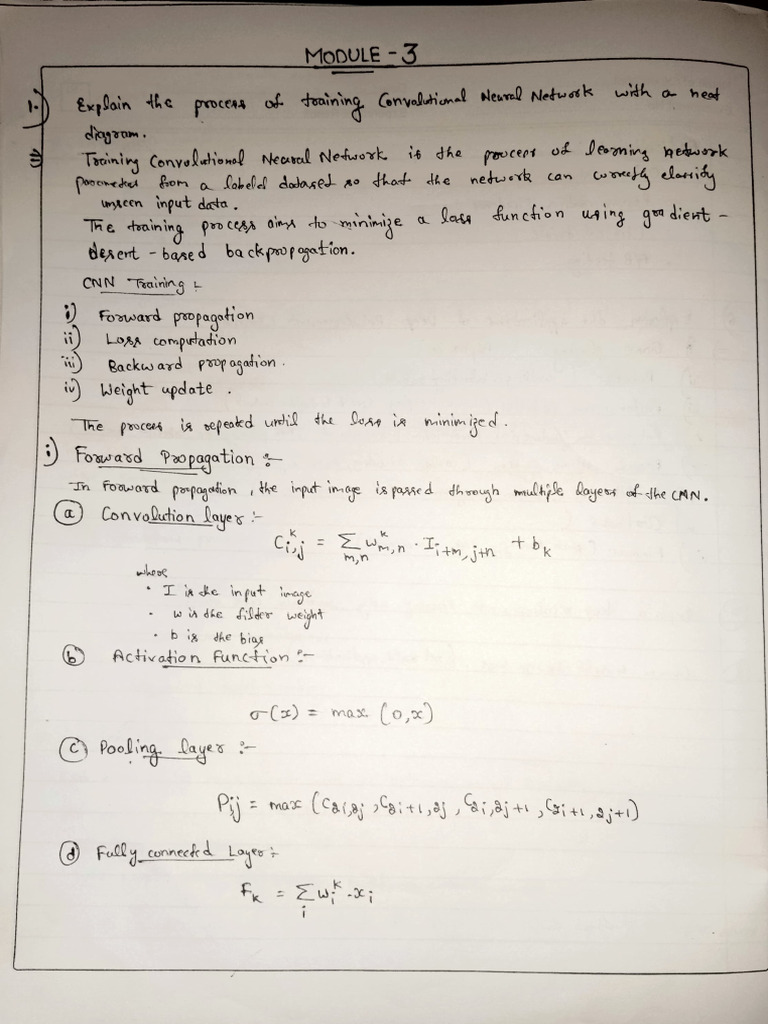 MODULE - 3
1. Explain the process of training Convolutional Neural Network with a neat
diagram.
Training Convolutional Neural Network is the process of learning network
parameters from a labeled dataset so that the network can correctly classify
unseen input data.
The training process aims to minimize a loss function using gradient -
desent - based backpropagation.
CNN Training :-
i) Forward propagation
ii) Loss computation
iii) Backward propagation.
iv) Weight update.
The process is repeated until the loss is minimized.
i) Forward Propagation :-
In Forward propagation, the input image is passed through multiple layers of the CNN.
(a) Convolution layer :-
C^k_{i,j} = Σ_{m,n} w^k_{m,n} · I_{i+m, j+n} + b_k
where
• I is the input image
• w is the filter weight
• b is the bias
(b) Activation Function :-
σ(x) = max (0,x)
(c) Pooling layer :-
P_{i,j} = max (C_{2i,2j}, C_{2i+1,2j}, C_{2i,2j+1}, C_{2i+1,2j+1})
(d) Fully connected Layer :-
F_k = Σ_i w_i^k · x_i